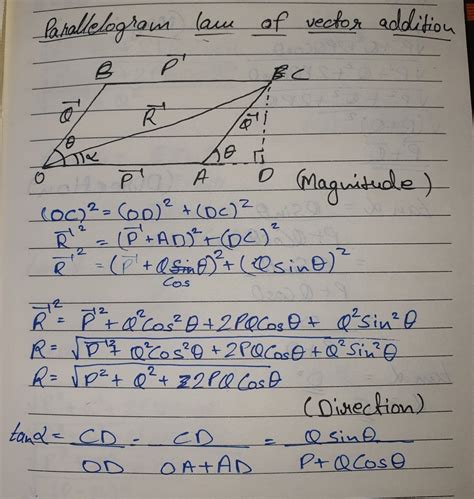 Parallelogram law of vector addition
B P⃗ C
Q⃗ R⃗ Q⃗
θ
α θ
O P⃗ A D (Magnitude)
(OC)² = (OD)² + (DC)²
R⃗² = (P⃗ + AD)² + (DC)²
R⃗² = (P⃗ + Q Cos θ)² + (Q Sin θ)²
R⃗² = P⃗² + Q² Cos² θ + 2PQ Cos θ + Q² Sin² θ
R = √P⃗² + Q² Cos² θ + 2PQ Cos θ + Q² Sin² θ
R = √P² + Q² + 2PQ Cos θ
(Direction)
tan α = CD/OD = CD/OA + AD = Q sin θ/P + Q Cos θ